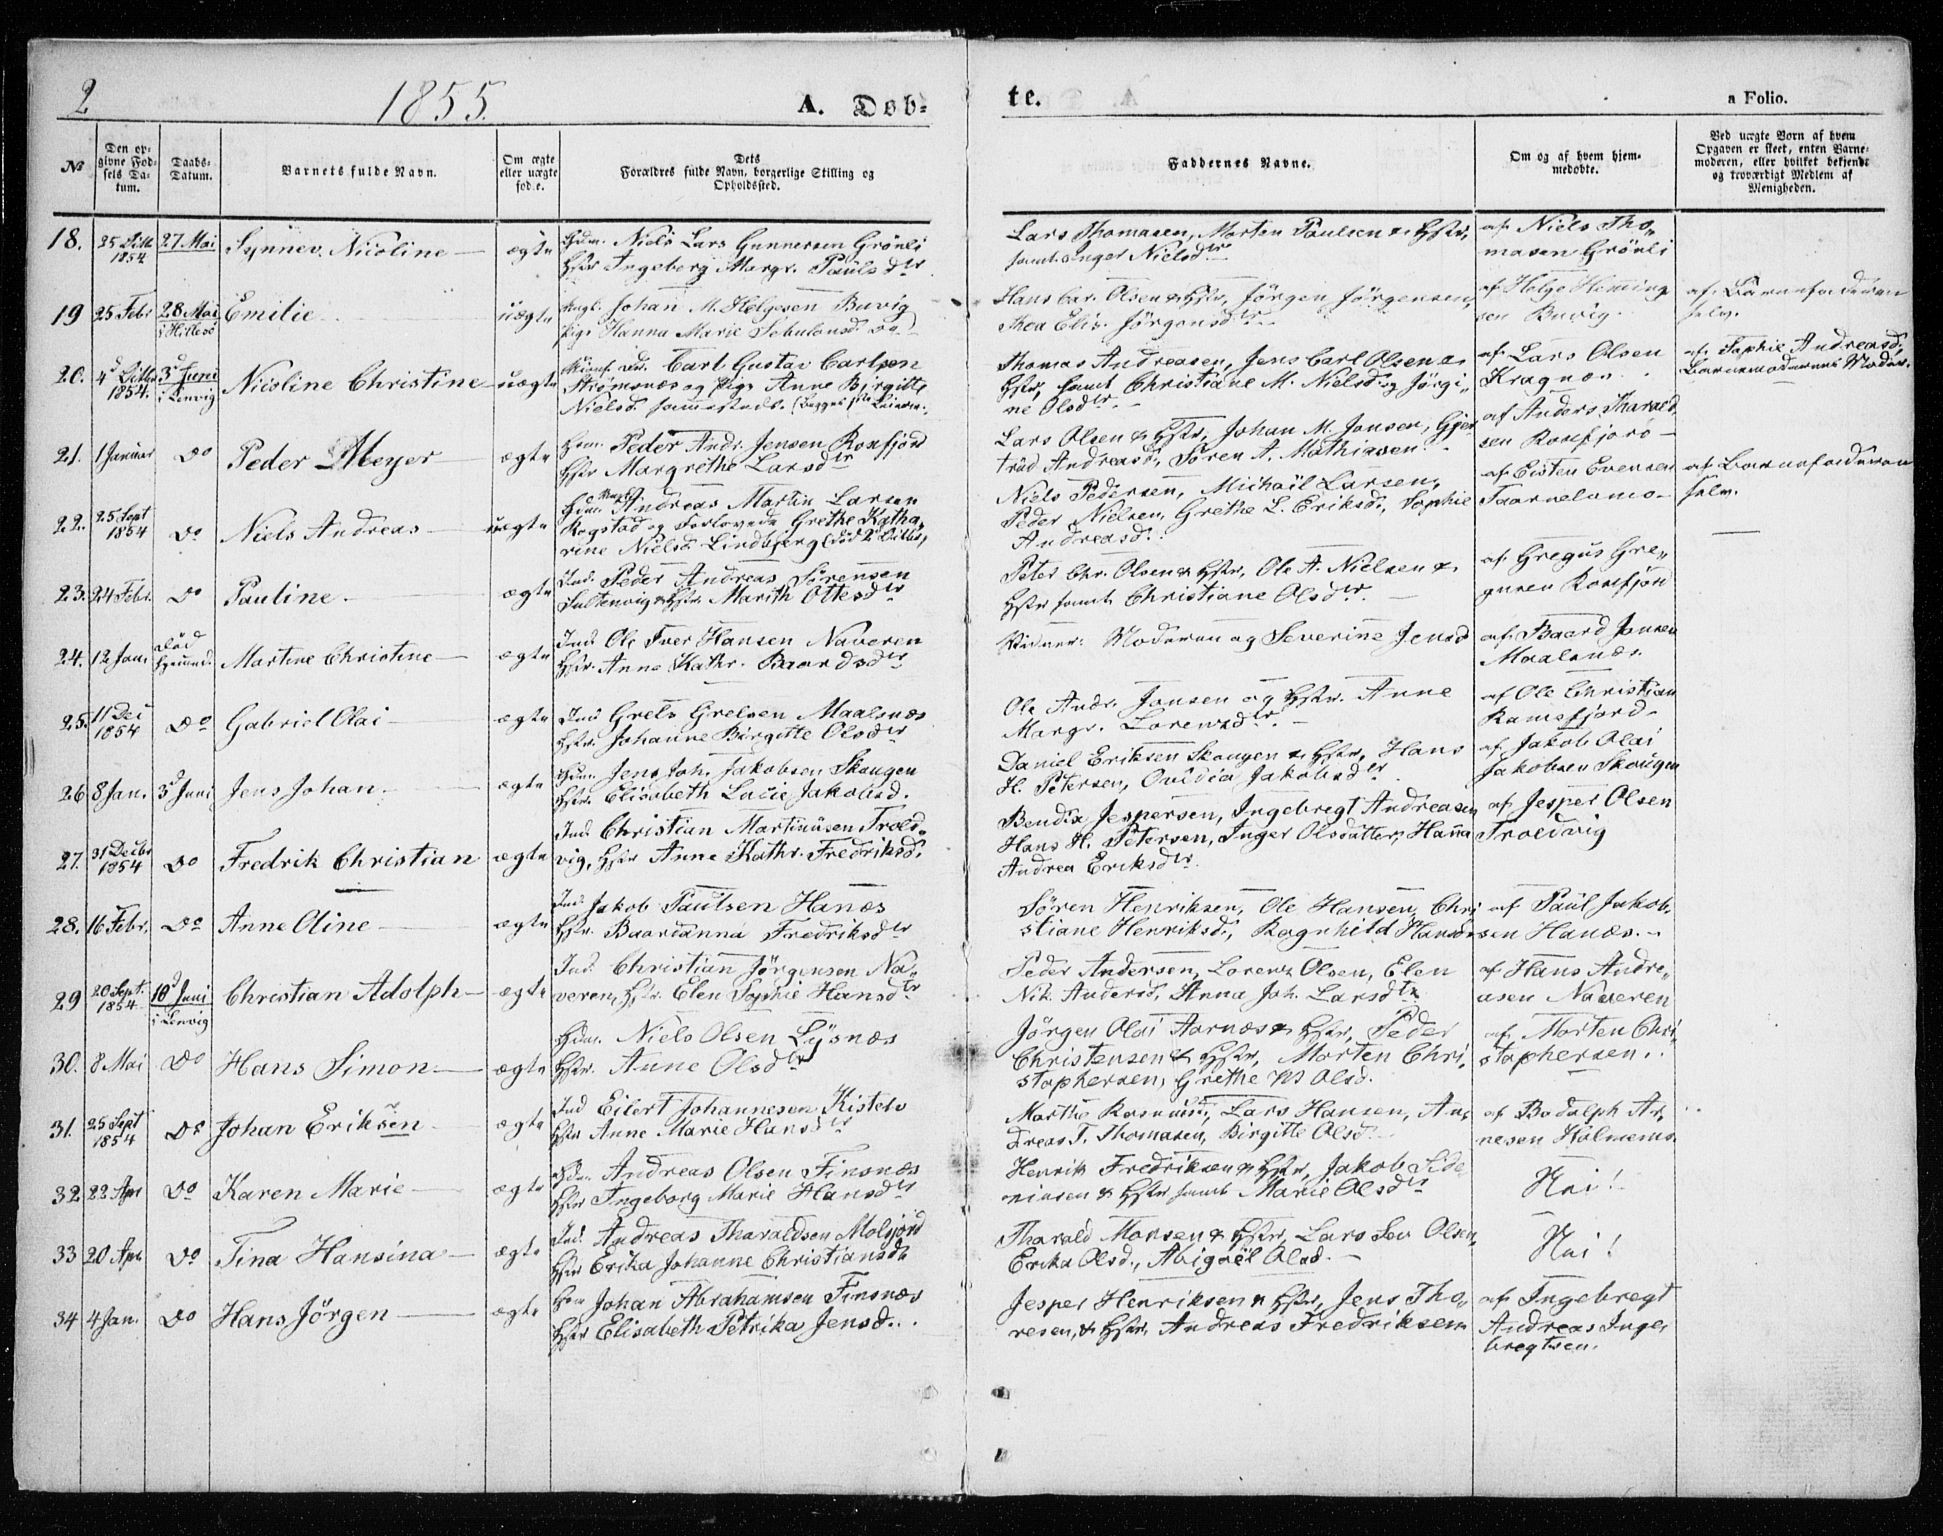 2 1855. A. Døb-
te. a Folio.
No
Den op-
givne Fød-
sels Da-
tum.
Daabs-
Datum.
Barnets fulde Navn.
Om ægte
eller uægte
fød.e.
Dets
Forældres fulde Navn, borgerlige Stilling og
Opholdssted.
Faddernes Navne.
Om og af hvem hjem-
medøbte.
Ved uægte Børn af hvem
Opgaven er skeet, enten Barne-
moderen, eller hvilket bekjendt
og troværdigt Medlem af
Menigheden.
18. 25 Octbr 1854 27 Mai Synnev Nicoline ægte
Gdm. Niels Lars Gunnersen Grönli
Hstr Ingeborg Margr. Paulsdtr
Lars Thomasen, Morten Paulsen & Hstr,
samt Inger Nielsdtr
af Niels Tho-
masen Grönli
19 25 Febr 28 Mai i Hillesö Emilie uægte
Ungk. Johan M. Helgesen Buvig
pige Hanna Marie Sebulonsd. do
Hans Car. Olsen & Hstr, Jörgen Jörgensen,
Thea Elis. Jörgensdtr
af Helge Heming-
sen Buvig.
af Barnefaderen
selv.
20. 4d Octbr 1854. 3d Juni i Lenvig Nicoline Christine uægte
Carl Gustav Carlsen
Strömsnæs og Pige Anne Birgitte
Nielsd. sammesteds. (Begges
Thomas Andreasen, Jens Carl Olsen &
Hstr, samt Christiane M. Nielsd. og Jörgi-
ne Olsdtr.
af Lars Olsen
Kragnæs
af Sophie Andreasd,
Barnemoderens Moder.
21. 1 Januar Do Peder Meyer ægte
Gdm. Peder Andr. Jensen Rosfjord
Hstr Margrethe Larsdtr
Lars Olsen & Hstr, Johan M. Jonsen, Gjer-
trud Andreasd, Sören A. Mathiasen.
af Anders Tharald-
sen Rosfjord
22. 25 Sept 1854 Do Niels Andreas uægte
Andreas Martin Larsen
Rogstad og Forlovede Grethe Katha-
rine Nielsd. Lindbjerg (död 2 Octbr)
Niels Pedersen, Michaël Larsen,
Peder Nielsen, Grethe L. Eriksd., Sophie
Andreasd.
af Eisten Evensen
Taarnelamo
af Barnefaderen
selv.
23. 24 Febr. Do Pauline ægte
Ind. Peder Andreas Sörensen
Sultenvig & Hstr. Marith Ottesdtr
Peter Chr. Olsen & Hstr, Ole A. Nielsen &
Hstr samt Christiane Olsdtr.
af Gregus Gre-
gusen Rosfjord
24. 12 Jan. Död Martine Christine ægte
Ind. Ole Iver Hansen Naveren
Hstr. Anne Kathr. Baardsdtr
Vidner: Moderen og Severine Jensd
af Baard Jensen
Maalsnæs.
25. 11 Dec 1854 Do Gabriel Olai ægte
Ind Grels Grelsen Maalsnæs
Hstr. Johanne Birgitte Olsdtr
Ole Andr. Jonsen og Hstr. Anne
Margr. Lorensdtr.
af Ole Christian
Ramsfjord.
26 8 Jan. 3d Juni Jens Johan ægte
Gdm. Jens Joh. Jakobsen Skougen
Hstr. Elisabeth Lucie Jakobsd.
Daniel Eriksen Skougen & Hstr, Hans
H. Petersen, Ovidia Jakobsdtr
af Jakob Olai
Jakobsen Skougen
27. 31 Decbr 1854 Do Fredrik Christian ægte
Ind. Christian Martinusen Trold-
vig, Hstr Anne Kathr. Fredriksd.
Bendix Jespersen, Ingebregt Andreasen
Hans H. Petersen, Inger Olsdatter, Hanna
Andrea Eriksdtr
af Jesper Olsen
Troldvig
28. 16 Febr. Do Anne Oline ægte
Ind. Jakob Paulsen Hanæs
Hstr. Baardanna Fredriksdtr
Sören Henriksen, Ole Hansen, Chri-
stiane Henriksd., Ragnhild Hansd
af Paul Jakob-
sen Hanæs.
29 20 Sept. 1854 10d Juni i Lenvig Christian Adolph ægte
Ind. Christian Jörgensen Na-
veren, Hstr. Elen Sophie Hansdtr
Peder Andersen, Lorenz Olsen, Elen
Nik. Andersd, Anna Joh. Larsdtr
af Hans Andre-
asen Naveren
30. 8 Mai Do Hans Simon ægte
Gdm. Niels Olsen Lysnæs
Hstr. Anne Olsdtr
Jörgen Olai Aarnæs & Hstr, Peder
Christensen & Hstr, Morten Chri-
stophersen, Grethe M Olsd.
af Morten Chri-
stophersen.
31. 25 Sept 1854 Do Johan Eriksen ægte
Ind Eilert Johannesen Kistels
Hstr Anne Marie Hansdtr
Marthe Rasmusd, Lars Hansen, An-
dreas T. Thomasen, Birgitte Olsd.
af Bodolph Ar-
nesen Holmenes
32. 22 Apr Do Karen Marie ægte
Gdm. Andreas Olsen Finsnæs
Hstr Ingeborg Marie Hansdtr
Henrik Fredriksen & Hstr, Jakob Side-
niusen & Hstr samt Marie Olsdtr
Nei!
33 20 Apr Do Tina Hansina ægte
Ind. Andreas Tharaldsen Molsjord
Hstr Erika Johanne Christiansdtr
Tharald Monsen & Hstr, Lars Sev Olsen,
Erika Olsd., Abigaël Olsd.
Nei!
34 4 Jan. Do Hans Jörgen ægte
Johan Abrahamsen Finsnæs
Hstr Elisabeth Petrika Jensd.
Jesper Henriksen & Hstr, Jens Tho-
resen, & Hstr. Andreas Fredriksen
af Ingebregt
Andreas Inge-
bregtsen.